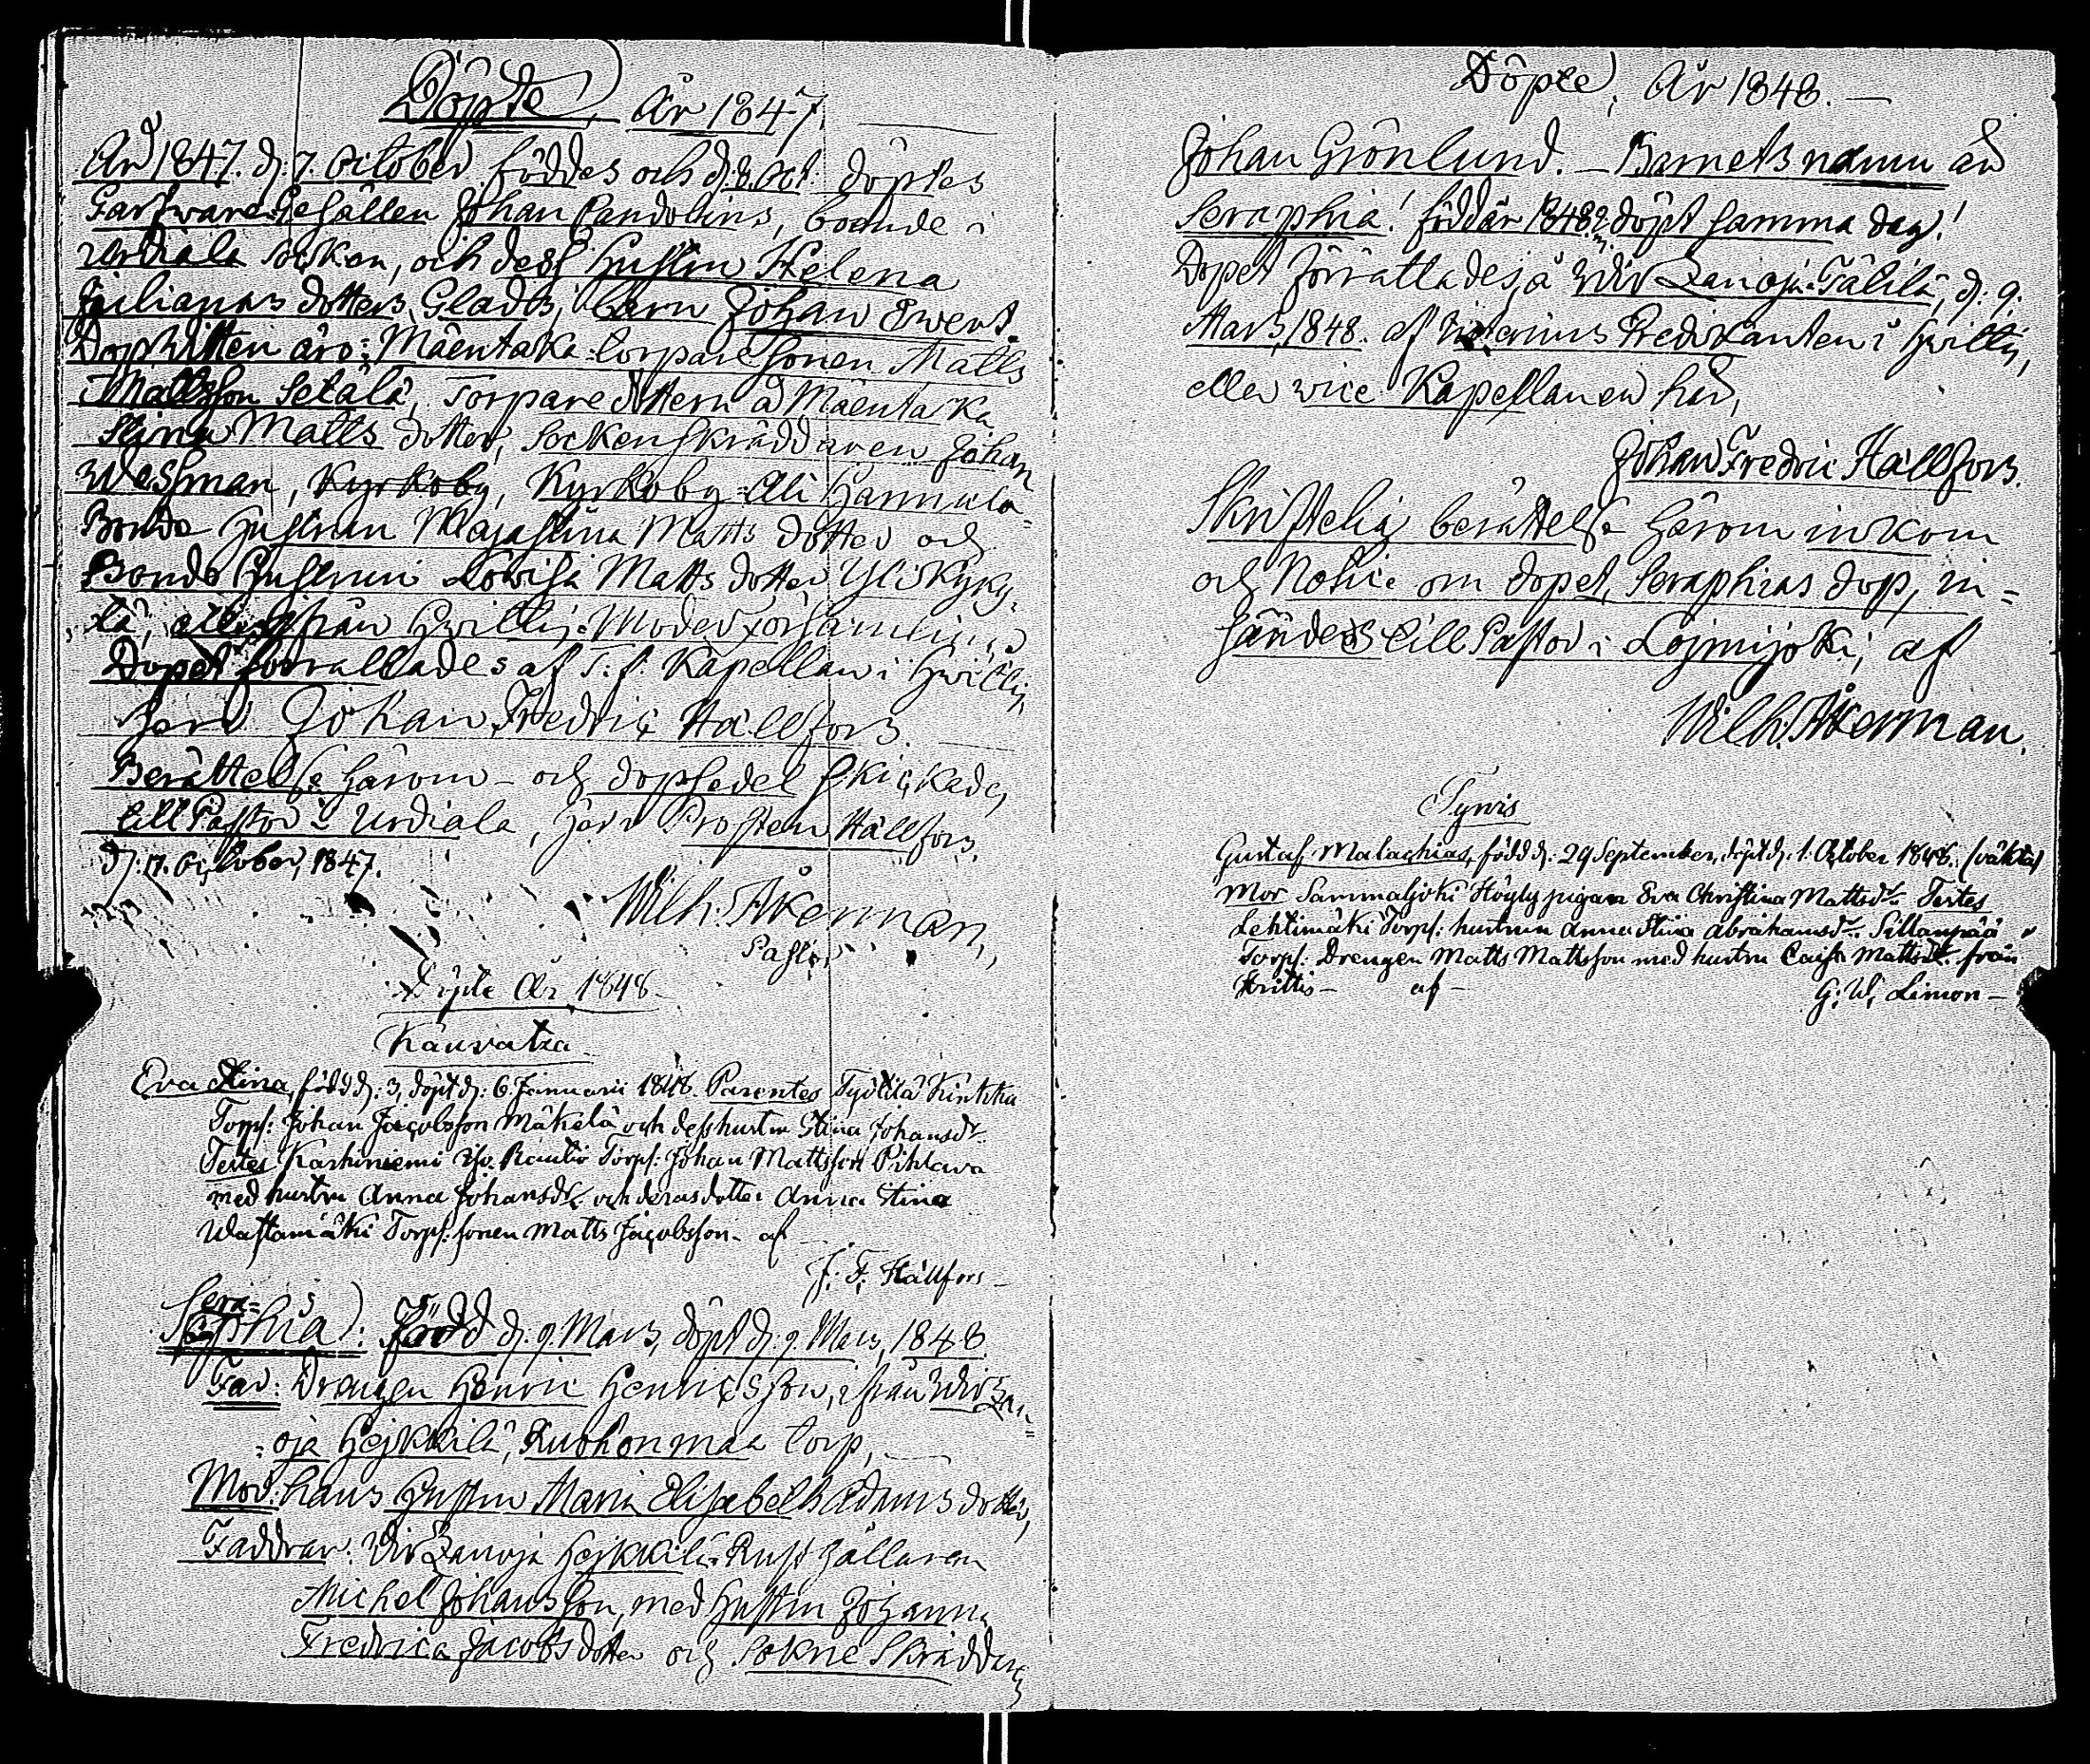 Döpte, År 1847.
År 1847. d: 7. October föddes och d. 8. Oct. döptes
Garfware Gesällen Johan Randolins, boende i
Urdiala Socken, och dess hustru Helena
Julianas dotters, Glados, barn Johan Ewert
Dopvittnen äro: Mäentaka torpare sonen Matts
Mattsson Setälä, Torpare dottern a Mäentaka
Stina Matts dotter, Sockenskräddaren Johan
Wessman, Kyrkoby, Kyrkoby Ali Hannula
Bonde hustrun Majastina Matts dotter och
Bonde hustrun Lovisa Matts dotter Yliskyky=
lä, alla ifrån Hvittis Moder församling
Dopet förrättades af T. f. Kapellan i Hvittis,
Herr Johan Fredric Hällfors.
Berättelse härom - och dopsedel skickade,
till Pastor i Urdiala, Herr Prosten Hällfors,
d: 17. October, 1847.
Wilh. Åkerman,
Pastor
Döpte År 1848
Kauvatsa
Eva Stina, född d: 3, döpt d: 6 Januarii 1848. Parentes Työtilä Kintika
Torp: Johan Jacobsson Mäkelä och dess hustru Stina Johansdr.
Testes Karhiniemi Iso Rautio Torp: Johan Mattsson Pihlava
med hustru Anna Johansdr. och deras dotter Anna Stina
Wastamäki Torp: sonen Matts Jacobsson - af
J. F. Hällfors -
Sera=
phia: Född d. 9. Mars, döpt d. 9. Mars, 1848.
Far: Drengen Henric Henricsson, ifrån Wirzan=
=oja Hejkkilä, Ruohonmaa torp,
Mor: hans hustru Maria Elisabeth Adams dotter,
Faddrar: Wirzanoja Hejkkilä Rusthållaren
Michel Johansson, med hustru Johanna
Fredrica Jacobs dotter och Sokne Skräddaren
Döpte, År 1848. -
Johan Grönlund. - Barnets namn är
Seraphia! född år 1848. döpt samma dag!
Dopet förrättades, å Wirzanoja Tälilä, d: 9.
Mars, 1848. af Vicarius Predikanten i Hvittis,
eller vice Kapellanen här,
Johan Fredric Hällfors.
Skriftelig berättelse härom inkom
och Notice om dopet, Seraphias dop, in=
sändes till Pastor i Lojmijoki, af
Wilh. Åkerman.
Tyrvis
Gustaf Malachias, född d: 29 September, döpt d: 1. October 1848. (oäkta)
Mor Sammaljoki Höyty pigan Eva Christina Mattsdr. Testes
Lehtimäki Torp: hustrun Anna Stina Abrahamsdr. Sillanpää
Torp: Drengen Matts Mattsson med hustru Caisa Mattsdr. från
Hvittis - af -
G. W. Limon -